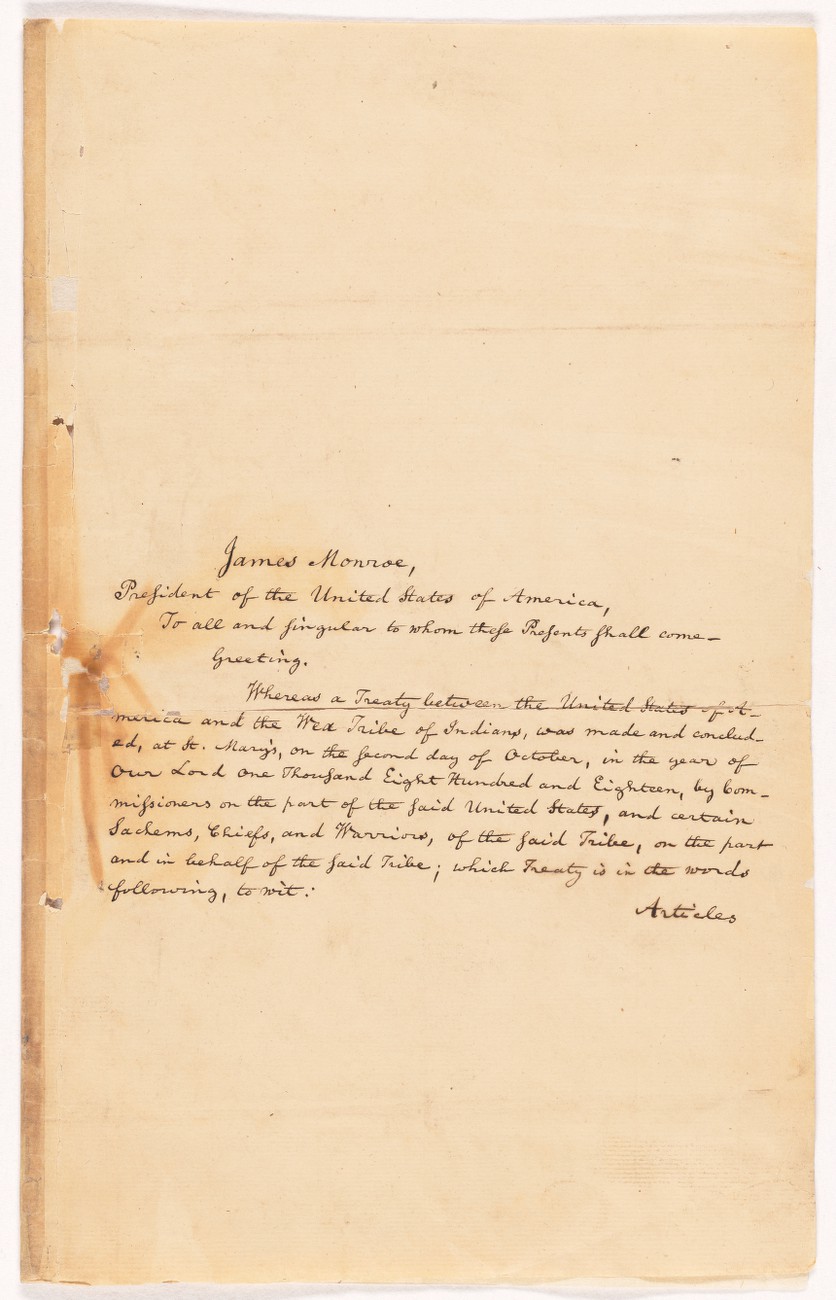 James Monroe,
President of the United States of America,
To all and singular to whom these Presents shall come—
Greeting.
Whereas a Treaty between the United States of A-
merica and the Wea Tribe of Indians, was made and conclud-
ed, at St. Mary's, on the second day of October, in the year of
Our Lord One Thousand Eight Hundred and Eighteen, by Com-
missioners on the part of the said United States, and certain
Sachems, Chiefs, and Warriors, of the said Tribe, on the part
and in behalf of the said Tribe; which Treaty is in the words
following, to wit:
Articles